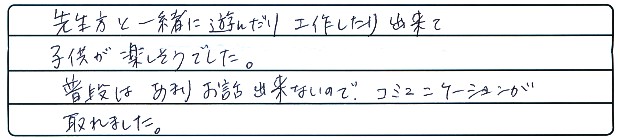 先生方と一緒に遊んだり 工作したり出来て
子供が楽しそうでした。
普段は あまり お話出来ないので、コミュニケーションが
取れました。